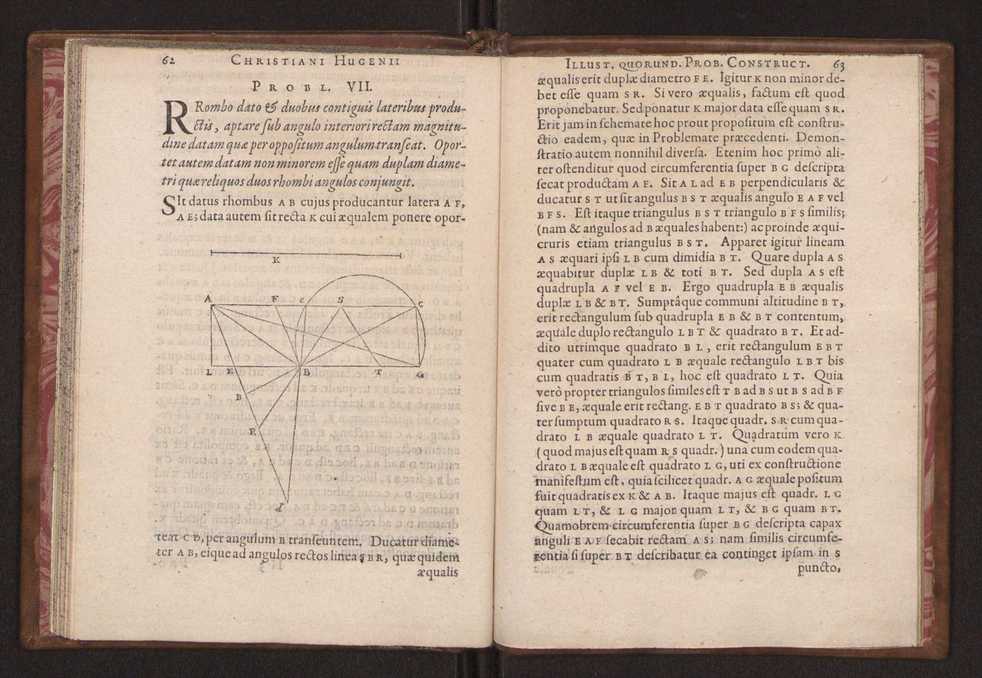 62 CHRISTIANI HUGENII
PROBL. VII.
RRombo dato & duobus contiguis lateribus produ-
ctis, aptare sub angulo interiori rectam magnitu-
dine datam quæ per oppositum angulum transeat. Opor-
tet autem datam non minorem esse quam duplam diame-
tri quæ reliquos duos rhombi angulos conjungit.
SIt datus rhombus A B cujus producantur latera A F,
A E; data autem sit recta K cui æqualem ponere opor-
K
A F c S C
L E B T G
B
R
d
teat C D, per angulum B transeuntem. Ducatur diame-
ter A B, eique ad angulos rectos linea S B R, quæ quidem
æqualis
ILLUST. QUORUND. PROB. CONSTRUCT. 63
æqualis erit duplæ diametro F E. Igitur K non minor de-
bet esse quam S R. Si vero æqualis, factum est quod
proponebatur. Sed ponatur K major data esse quam S R.
Erit jam in schemate hoc prout propositum est constru-
ctio eadem, quæ in Problemate præcedenti. Demon-
stratio autem nonnihil diversa. Etenim hoc primò ali-
ter ostenditur quod circumferentia super B G descripta
secat productam A F. Sit A L ad E B perpendicularis &
ducatur S T ut sit angulus B S T æqualis angulo E A F vel
B F S. Est itaque triangulus B S T triangulo B F S similis;
(nam & angulos ad B æquales habent:) ac proinde æqui-
cruris etiam triangulus B S T. Apparet igitur lineam
A S æquari ipsi L B cum dimidia B T. Quare dupla A S
æquabitur duplæ L B & toti B T. Sed dupla A S est
quadrupla A F vel E B. Ergo quadrupla E B æqualis
duplæ L B & B T. Sumptâque communi altitudine B T,
erit rectangulum sub quadrupla E B & B T contentum,
æquale duplo rectangulo L B T & quadrato B T. Et ad-
dito utrimque quadrato B L, erit rectangulum E B T
quater cum quadrato L B æquale rectangulo L B T bis
cum quadratis B T, B L, hoc est quadrato L T. Quia
verò propter triangulos similes est T B ad B S ut B S ad B F
sive B E, æquale erit rectang. E B T quadrato B S; & qua-
ter sumptum quadrato R S. Itaque quadr. S R cum qua-
drato L B æquale quadrato L T. Quadratum vero K
(quod majus est quam R S quadr.) una cum eodem qua-
drato L B æquale est quadrato L G, uti ex constructione
manifestum est, quia scilicet quadr. A G æquale positum
fuit quadratis ex K & A B. Itaque majus est quadr. L G
quam L T, & L G major quam L T, & B G quam B T.
Quamobrem circumferentia super B G descripta capax
anguli E A F secabit rectam A S; nam similis circumfe-
rentia si super B T describatur ea continget ipsam in S
puncto,